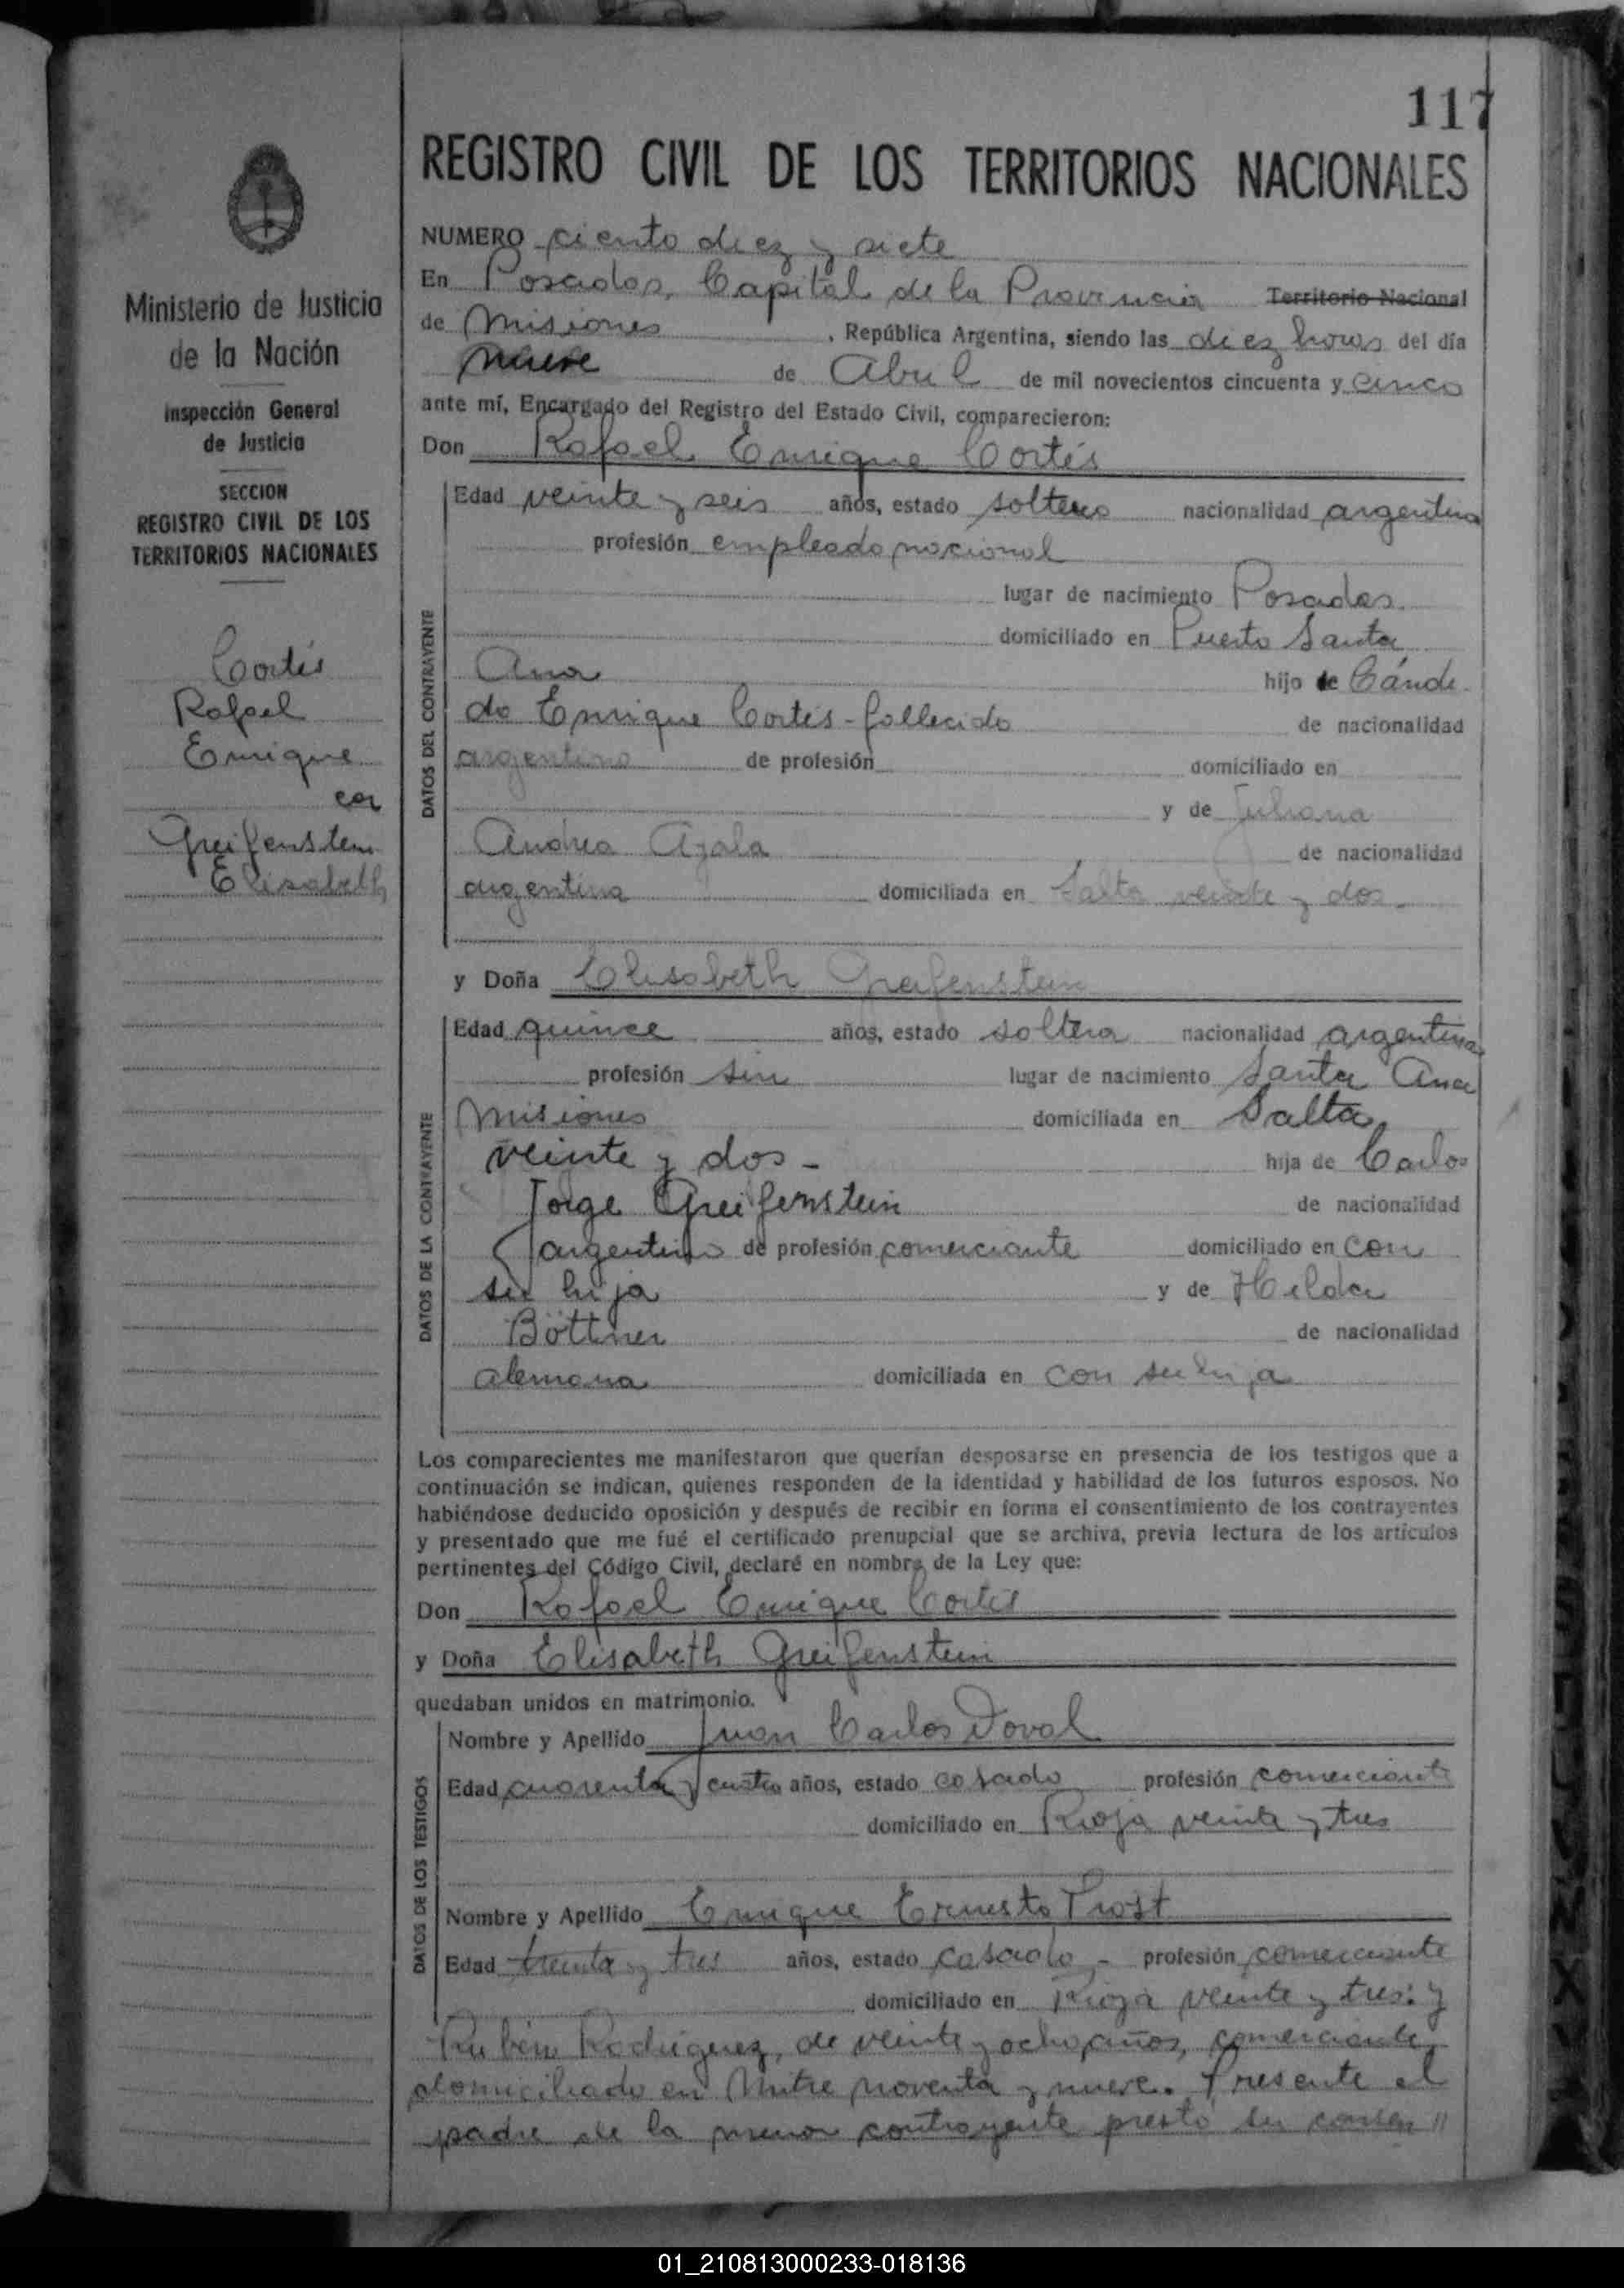 117
REGISTRO CIVIL DE LOS TERRITORIOS NACIONALES
NUMERO ciento diez y siete
En Posadas, Capital de la Provincia Territorio Nacional
de Misiones, República Argentina, siendo las diez horas del día
nueve de Abril de mil novecientos cincuenta y cinco
ante mí, Encargado del Registro del Estado Civil, comparecieron:
Don Rafael Enrique Cortés
Ministerio de Justicia
de la Nación
Inspección General
de Justicia
SECCION
REGISTRO CIVIL DE LOS
TERRITORIOS NACIONALES
Cortés
Rafael
Enrique
con
Greifenstein
Elisabeth
DATOS DEL CONTRAYENTE
Edad veinte y seis años, estado soltero nacionalidad argentina
profesión empleado nacional
lugar de nacimiento Posadas
domiciliado en Puerto Santa
Ana hijo de Cándi
do Enrique Cortés - fallecido de nacionalidad
argentino de profesión domiciliado en
y de Juliana
Andrea Ayala de nacionalidad
argentina domiciliada en Salta veinte y dos.
y Doña Elisabeth Greifenstein
DATOS DE LA CONTRAYENTE
Edad quince años, estado soltera nacionalidad argentina
profesión sin lugar de nacimiento Santa Ana
Misiones domiciliada en Salta
veinte y dos - hija de Carlos
Jorge Greifenstein de nacionalidad
argentino de profesión comerciante domiciliado en con
su hija y de Hilda
Böttner de nacionalidad
alemana domiciliada en con su hija
Los comparecientes me manifestaron que querían desposarse en presencia de los testigos que a
continuación se indican, quienes responden de la identidad y habilidad de los futuros esposos. No
habiéndose deducido oposición y después de recibir en forma el consentimiento de los contrayentes
y presentado que me fué el certificado prenupcial que se archiva, previa lectura de los artículos
pertinentes del Código Civil, declaré en nombre de la Ley que:
Don Rafael Enrique Cortés
y Doña Elisabeth Greifenstein
quedaban unidos en matrimonio.
DATOS DE LOS TESTIGOS
Nombre y Apellido Juan Carlos Doval
Edad cuarenta y cuatro años, estado casado profesión comerciante
domiciliado en Rioja veinte y tres
Nombre y Apellido Enrique Ernesto Prost
Edad treinta y tres años, estado casado - profesión comerciante
domiciliado en Rioja veinte y tres: y
Rubén Rodríguez, de veinte y ocho años, comerciante,
domiciliado en Mitre noventa y nueve. Presente el
padre de la menor contrayente prestó su consen //
01_210813000233-018136